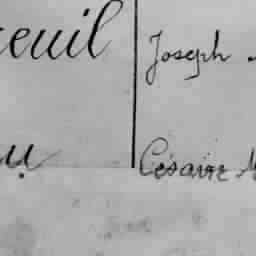 euil Joseph
u Césaire